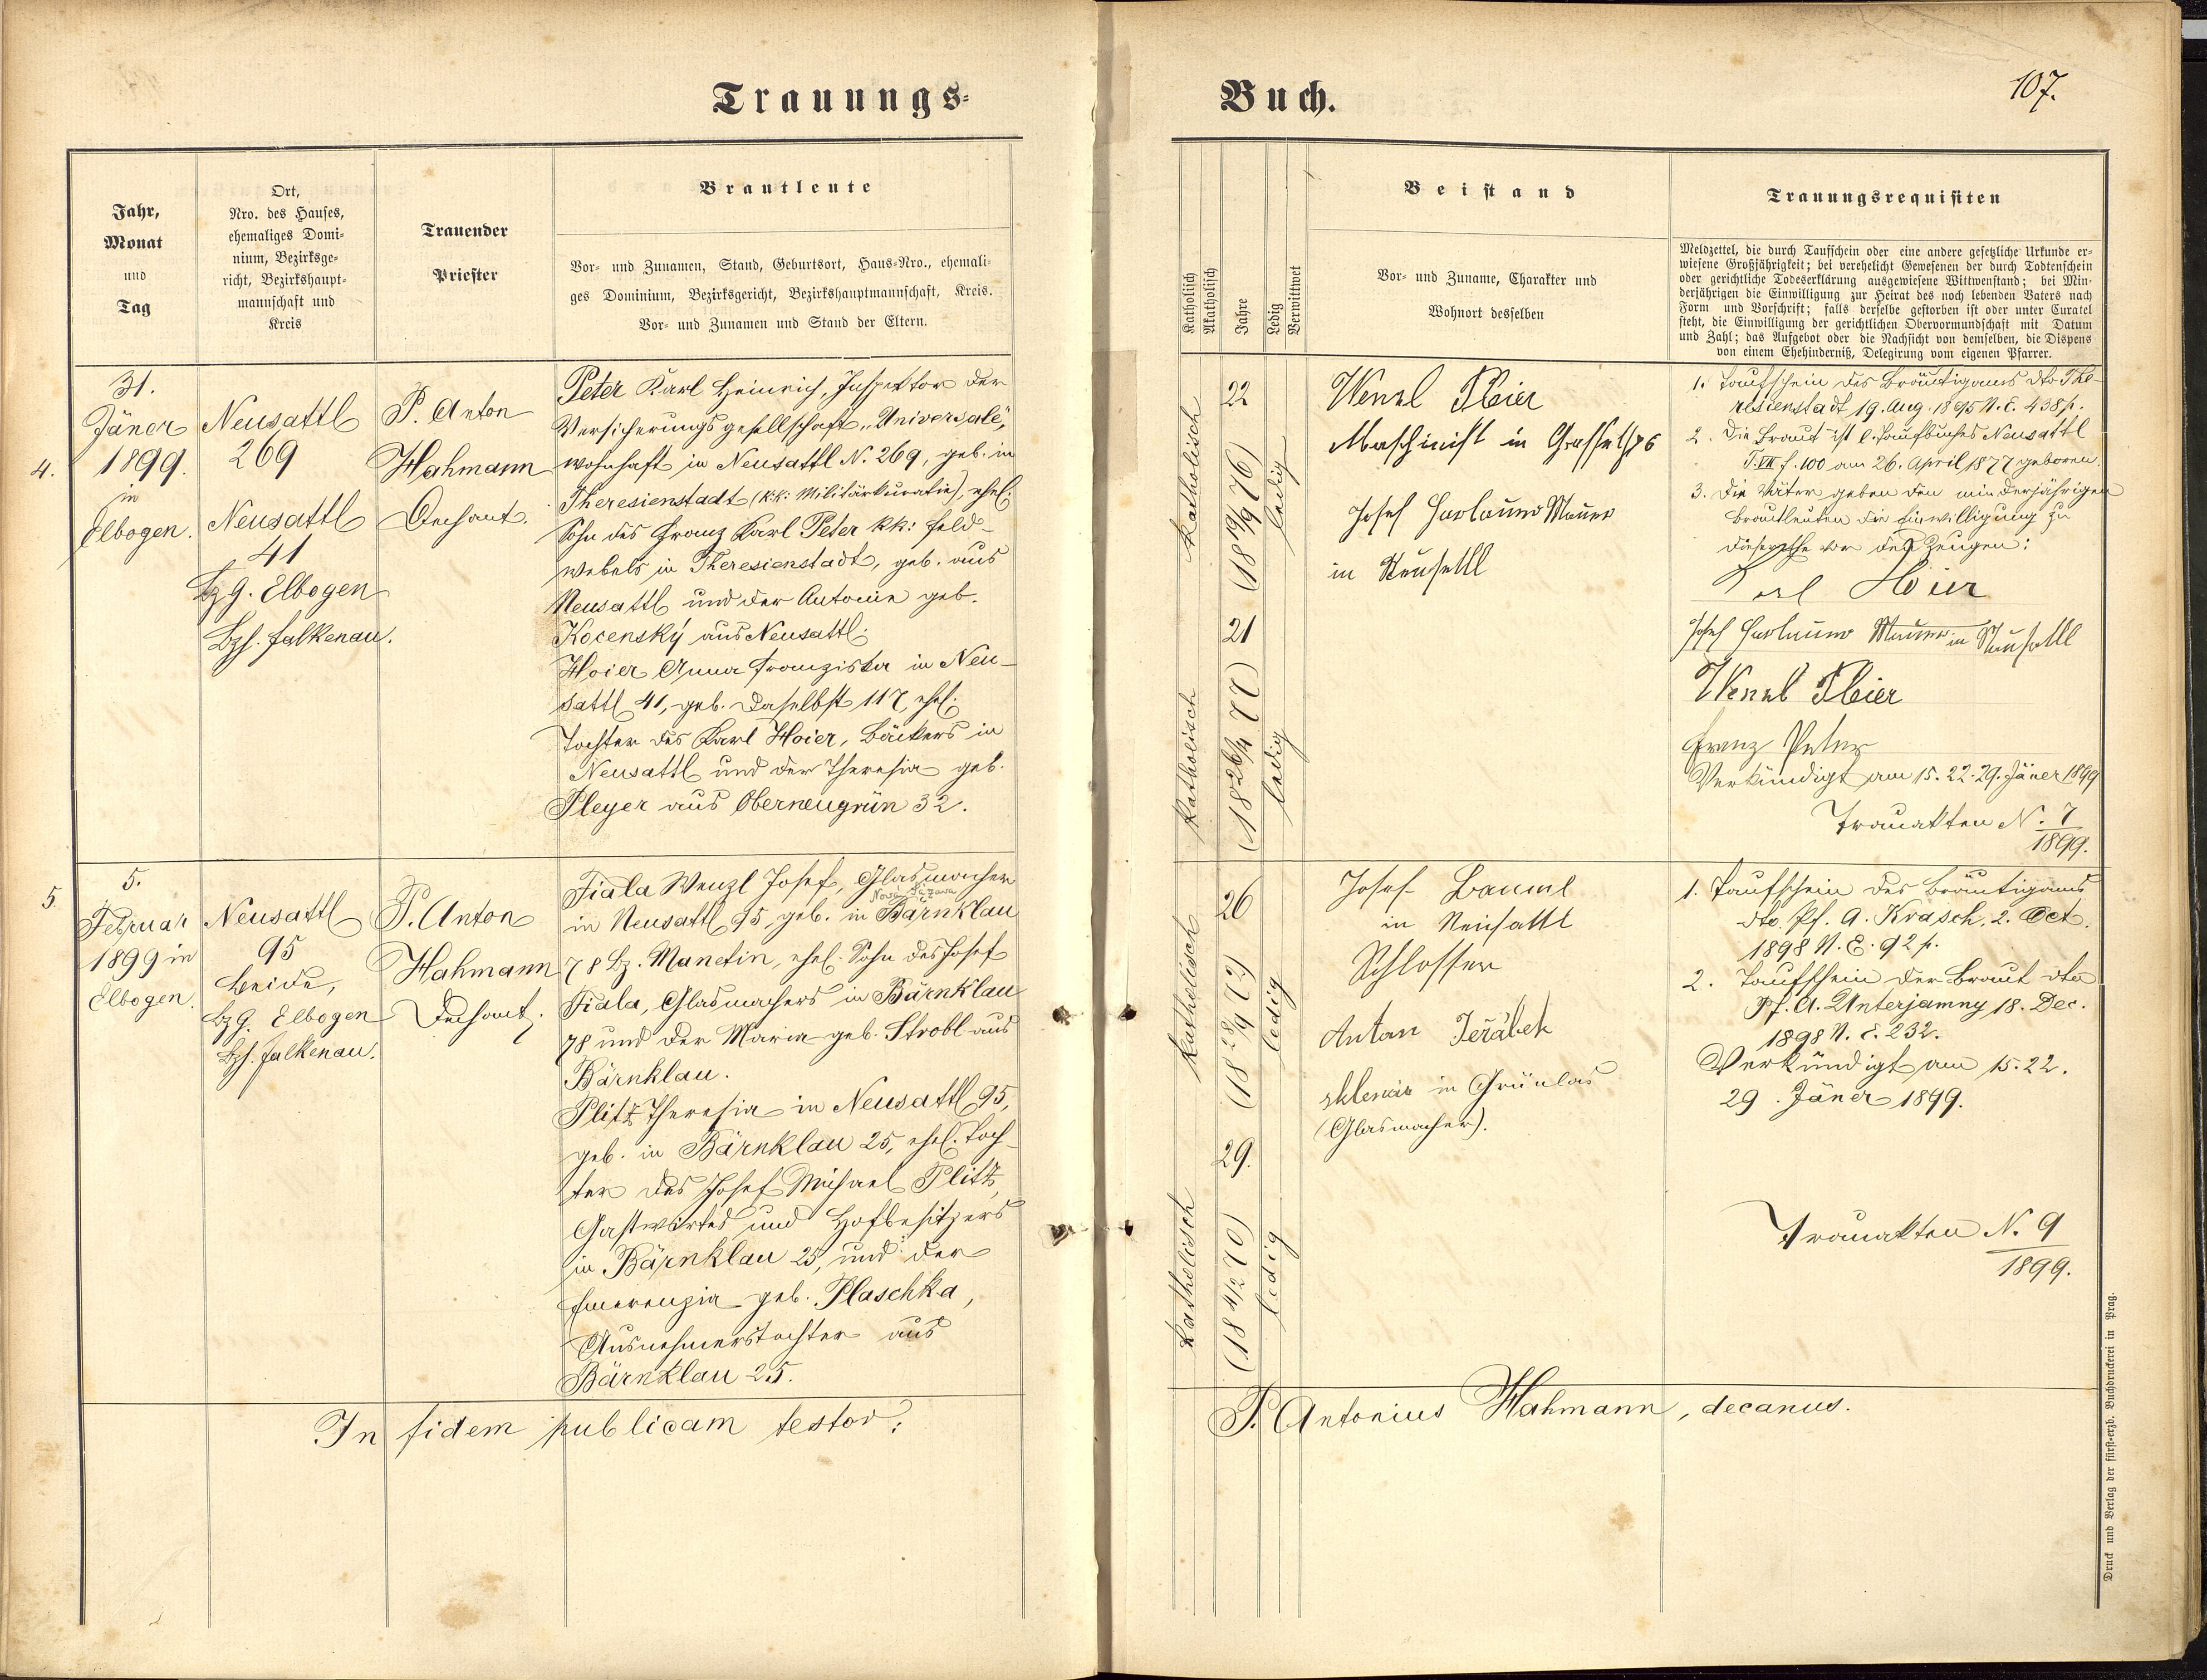 Trauungs-
Buch.
107.
Jahr,
Monat
und
Tag
Ort,
Nro. des Hauses,
ehemaliges Domi-
nium, Bezirksge-
richt, Bezirkshaupt-
mannschaft und
Kreis
Trauender
Priester
Brautleute
Vor- und Zunamen, Stand, Geburtsort, Haus-Nro., ehemali-
ges Dominium, Bezirksgericht, Bezirkshauptmannschaft, Kreis.
Vor- und Zunamen und Stand der Eltern.
Katholisch
Akatholisch
Jahre
Ledig
Verwittwet
Beistand
Vor- und Zuname, Charakter und
Wohnort desselben
Trauungsrequisiten
Meldzettel, die durch Taufschein oder eine andere gesetzliche Urkunde er-
wiesene Großjährigkeit; bei verehelicht Gewesenen der durch Todtenschein
oder gerichtliche Todeserklärung ausgewiesene Wittwenstand; bei Min-
derjährigen die Einwilligung zur Heirat des noch lebenden Vaters nach
Form und Vorschrift; falls derselbe gestorben ist oder unter Curatel
steht, die Einwilligung der gerichtlichen Obervormundschaft mit Datum
und Zahl; das Aufgebot oder die Nachsicht von demselben, die Dispens
von einem Ehehinderniß, Delegirung vom eigenen Pfarrer.
4.
31.
Jäner
1899.
in
Elbogen.
Neusattl
269
Neusattl
41
Bzg. Elbogen
Bzh. Falkenau.
P. Anton
Hahmann
Dechant.
Peter Karl Heinrich, Inspektor der
Versicherungsgesellschaft „Universale",
wohnhaft in Neusattl N. 269, geb. in
Theresienstadt (k.k. Militärkuratie), ehel.
Sohn des Franz Karl Peter k.k. Feld-
webels in Theresienstadt, geb. aus
Neusattl und der Antonie geb.
Kocenský aus Neusattl.
Hoier Anna Franziska in Neu-
sattl 41, geb. daselbst 117, ehel.
Tochter des Karl Hoier, Bäckers in
Neusattl und der Theresia geb.
Pleyer aus Oberneugrün 32.
katholisch
22
(18 19/9 76)
ledig
katholisch
21
(18 26/4 77)
ledig
Wenzl
Maschinist in
Josef Mauer
in Neusattl
1. Taufschein des Bräutigams dto The-
resienstadt 19. Aug. 1895 N. E. 438 p.
2. Die Braut ist l. Taufbuches Neusattl
T. VII f. 100 am 26. April 1877 geboren.
3. Die Väter geben den minderjährigen
Brautleuten die Einwilligung zu
dieser Ehe vor den Zeugen:
Karl Hoier
Josef Maurer in Neusattl
Wenzl
Franz Peter
Verkündigt am 15. 22. 29. Jäner 1899
Trauakten N. 7
1899.
5.
5.
Februar
1899 in
Elbogen.
Neusattl
95
beide,
Bzg. Elbogen
Bzh. Falkenau.
P. Anton
Hahmann
Dechant.
Fiala Wenzl Josef, Glasmacher
in Neusattl 95, geb. in Bärnklau
78 Bz. Manetin, ehel. Sohn des Josef
Fiala, Glasmachers in Bärnklau
78 und der Maria geb. Strobl aus
Bärnklau.
Plitz Theresia in Neusattl 95,
geb. in Bärnklau 25, ehel. Toch-
ter des Josef Michael Plitz,
Gastwirtes und Hofbesitzers
in Bärnklau 25, und der
Emerenzia geb. Plaschka,
Ausnehmerstochter aus
Bärnklau 25.
katholisch
26
(18 28/9 72)
ledig
katholisch
29.
(18 4/2 70)
ledig
Josef Bauml
in Neusattl
Schlosser
Anton Jeřábek
sklenář in Grünlas
(Glasmacher).
1. Taufschein des Bräutigams
dto. Pf. A. Krasch, 2. Oct.
1898 N. E. 92 p.
2. Taufschein der Braut dto
Pf. A. Unterjamny 18. Dec.
1898 N. E. 232.
Verkündigt am 15. 22.
29. Jäner 1899.
Trauakten N. 9
1899.
In fidem publicam testor:
P. Antonius Hahmann, decanus.
Druck und Verlag der fürst-erzb. Buchdruckerei in Prag.